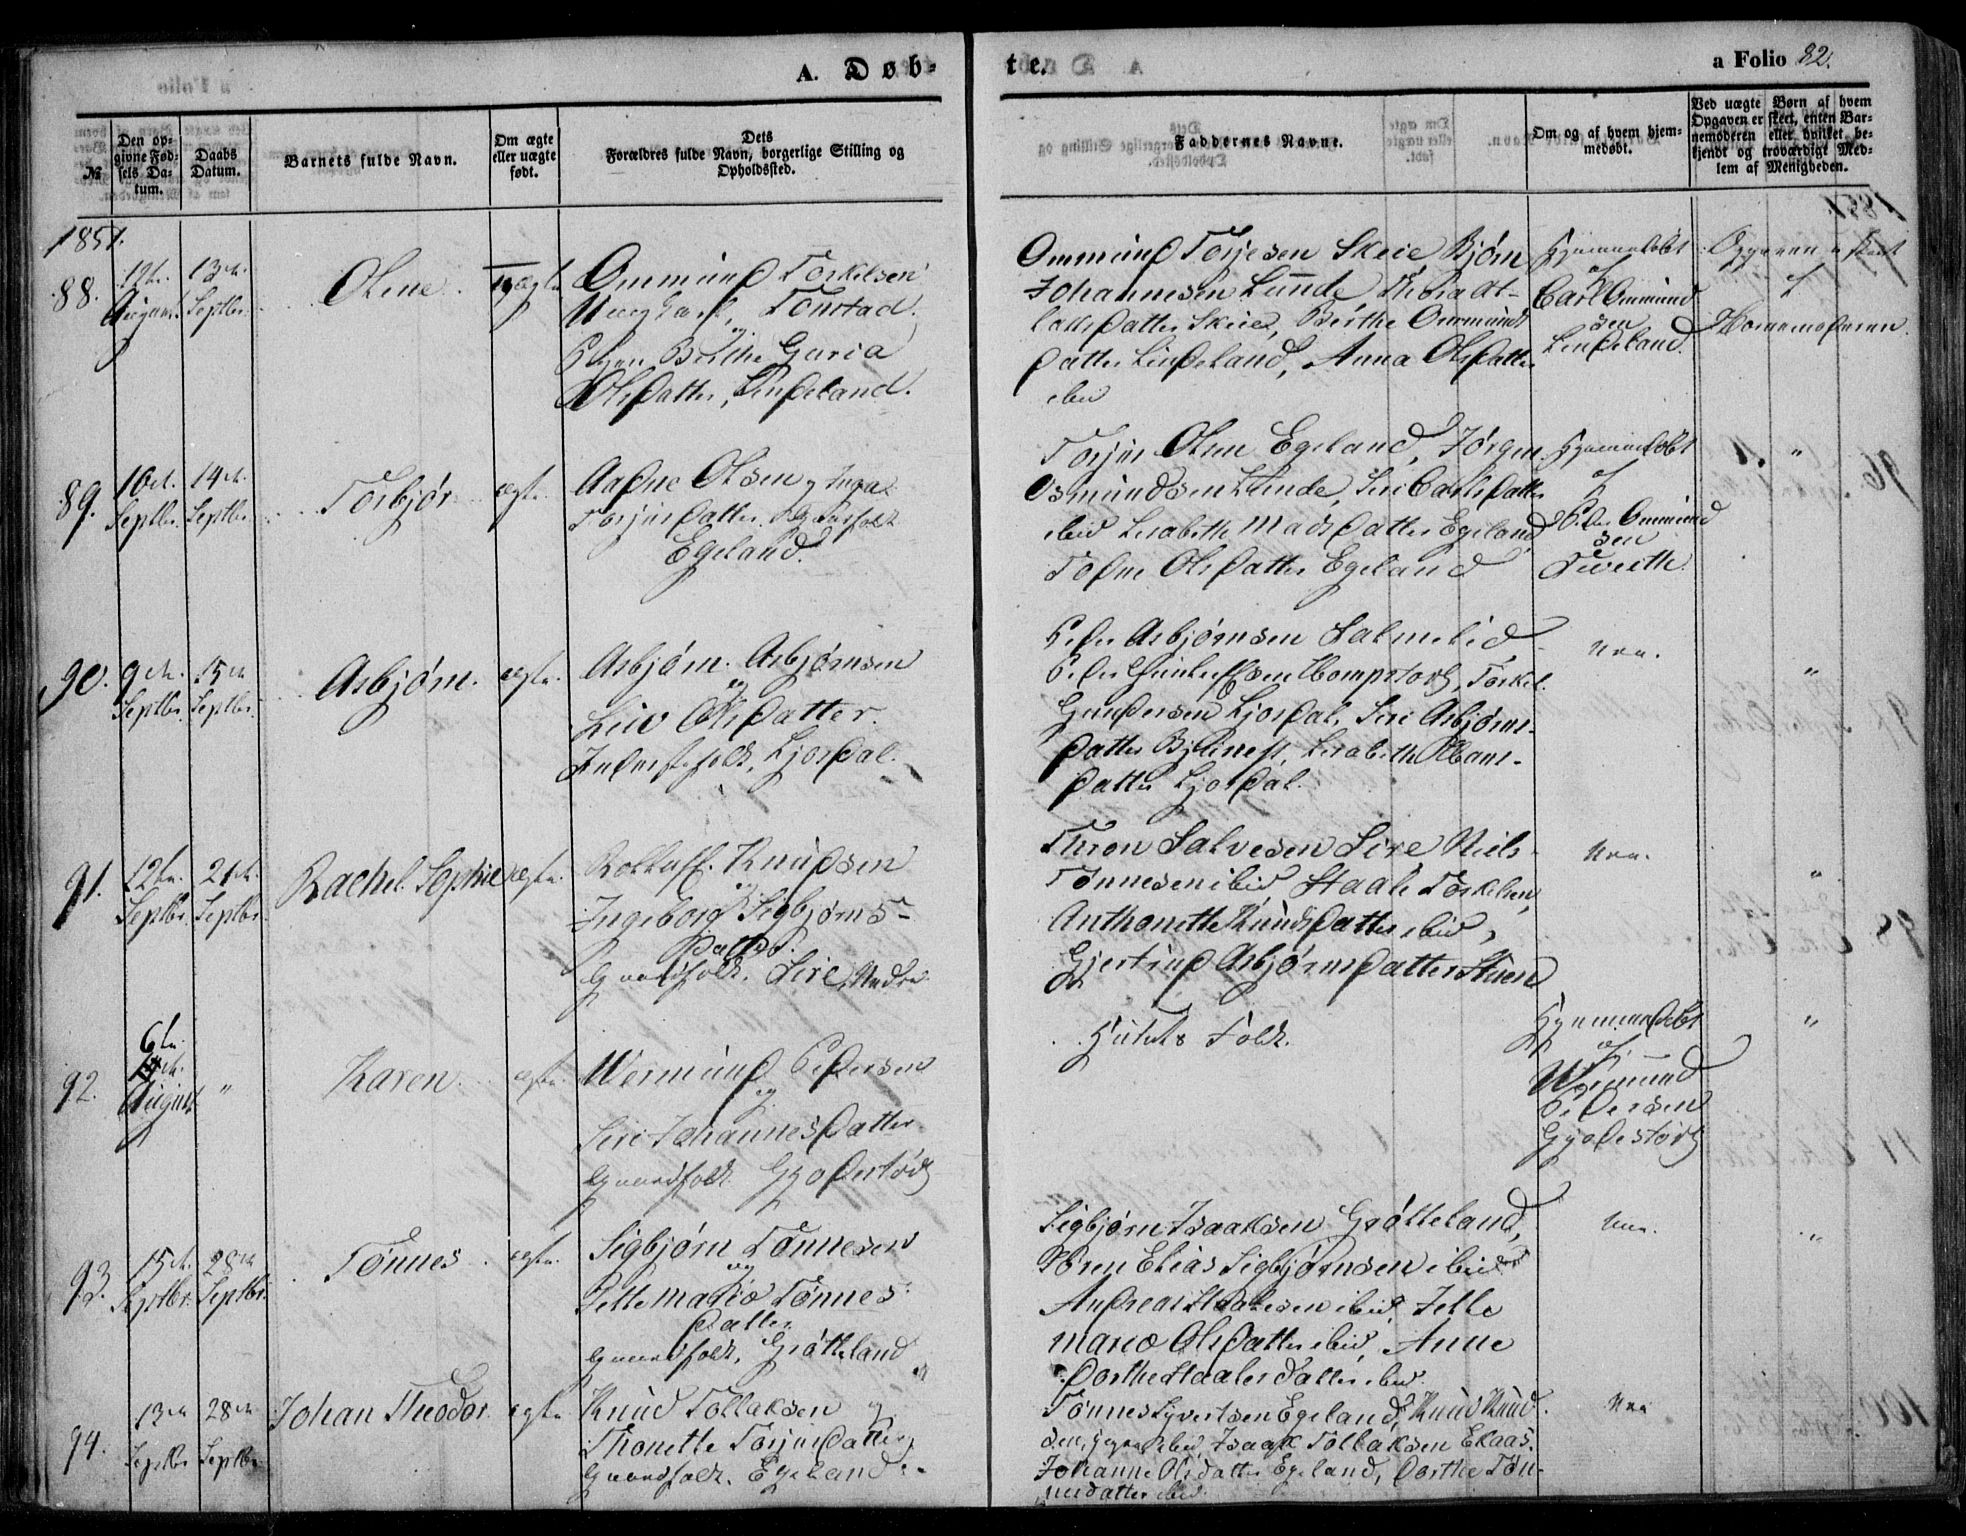 A. Døb-
te.
a Folio 82.
№
Den op-
givne Fød-
sels Da-
tum.
Daabs
Datum.
Barnets fulde Navn.
Om ægte
eller uægte
født.
Dets
Forældres fulde Navn, borgerlige Stilling og
Opholdssted.
Faddernes Navne.
Om og af hvem hjem-
medøbt.
Ved uægte Børn af hvem
Opgaven er skeet, enten Bar-
nemoderen eller hvilket be-
kjendt og troværdigt Med-
lem af Menigheden.
1851.
88.
12te
August
13de
Septbr.
Olene
uægte
Ommund Torkelsen
Ungkarl, Tonstad
og
Pigen Berthe Guria
Olsdatter, Lindeland.
Ommund Torjesen Skeie Bjørn
Johannesen Lunde, Thora At-
laksdatter Skeie, Berthe Ommunds
datter Lindeland, Anna Olsdatter
ibid
Hjemmedøbt
af
Carl Ommund
sen
Lindeland.
Opgaven er skeet
af
Barnemoderen.
89.
10de
Septbr.
14de
Septbr.
Torbjør
ægte
Aadne Olsen og Inga
Torjusdatter
Egeland.
Torjus Olsen Egeland, Jørgen
Osmundsen Lunde, Siri Carlsdatter
ibid Lisabeth Madsdatter Egeland
Todne Olsdatter Egeland
Hjemmedøbt
af
Peder Ommund
sen
Tveith.
"
90.
9de
Septbr.
15de
Septbr.
Asbjørn.
ægte.
Asbjørn Asbjørnsen
og
Liv Olsdatter.
Inderstfolk, Ljosdal.
Peder Asbjørnsen Salmelid
Peder Guntleffsen Hompstøl, Torkel
Gundersen Ljosdal, Siri Asbjørns-
datter Bjuness, Lisabeth Hans-
datter Ljosdal.
Nei.
"
91.
12te
Septbr.
21de
Septbr.
Rachel Sophie
ægte.
Rolleff Knudsen
og
Ingeborg Sigbjørns-
datter.
Gaardfolk, Sire, Nedre
Thron Salvesen Sire Niels
Tønnesen ibid Staale Torkelsen,
Anthonette Knudsdatter ibid,
Gjertrud Asbjørnsdatter Stuen
Nei.
"
92.
6te
August
"
Karen
ægte.
Wermund Pedersen
og
Siri Johannesdatter
Gaardfolk Gyadestøl
Husets Folk.
Hjemmedøbt
af
Wermund
Pedersen
Gyadestøl
"
93.
15de
Septbr.
28de
Septbr.
Tønnes
ægte.
Sigbjørn Tønnesen
og
Jette Maria Tønnes-
datter
Gaardfolk, Grøtteland
Sigbjørn Isaaksen Grøtteland,
Søren Elias Sigbjørnsen ibid
Andreas Staalesen ibid, Jette
Maria Olsdatter ibid, Anne
Dorthe Staalesdatter ibid.
Nei.
"
94.
13de
Septbr
28de
Septbr
Johan Theodor
ægte.
Knud Tollaksen og
Thonette Torjusdatter,
Gaardfolk. Egeland.
Tønnes Syvertsen Egeland, Knud Knud
sen, ibid, Isaak Tollaksen Ekaas.
Johanne Olsdatter Egeland, Dorthe Tøn-
nesdatter ibid.
Nei